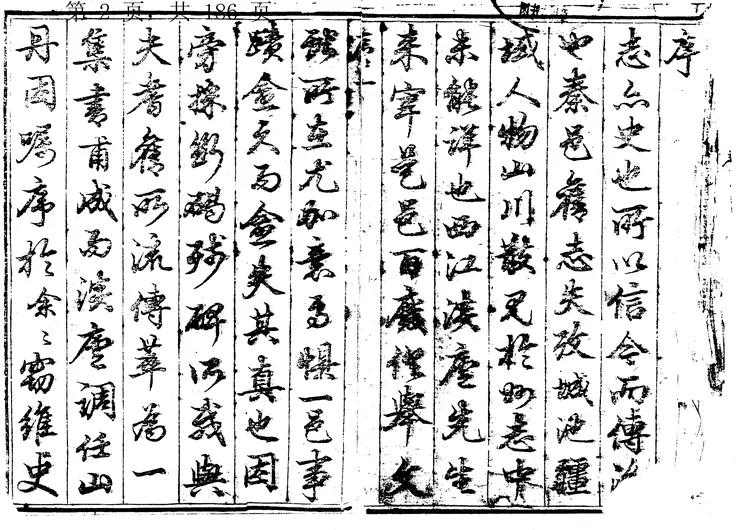 第 2 页，共 186 页
序
志亦史也所以信今而傳
也秦邑舊志失攷城池疆
域人物山川散見於州志中
未能詳也西江漢廔先生
来宰是邑百廢俱舉文
獻所在尤加意焉惧一邑事
蹟愈久而愈失其真也因
旁採斷碣殘碑所載與
夫耆舊所流傳萃為一
集書甫成而漢廔調任山
丹因囑序於余〻竊維史